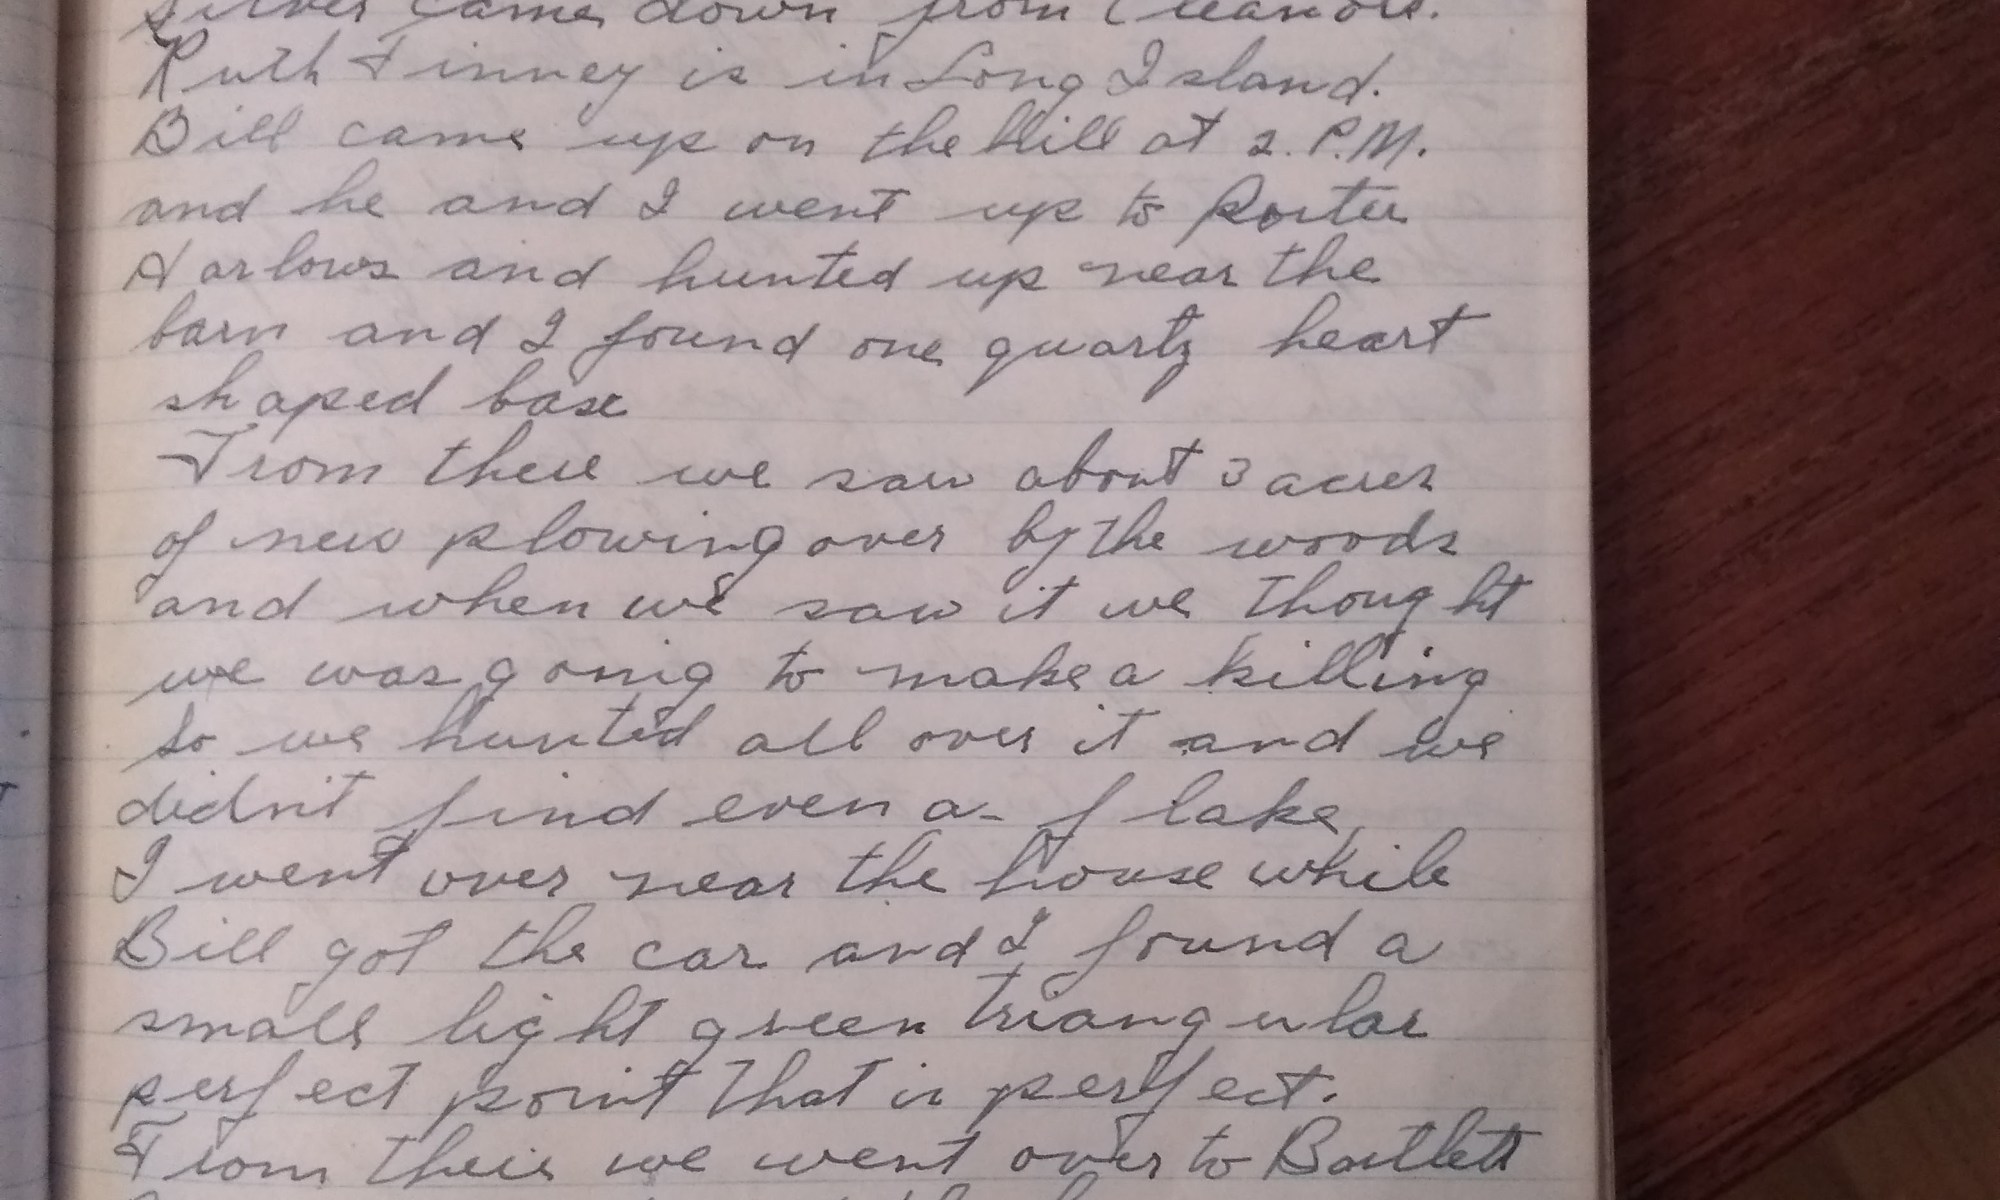 Silver came down from Eleanors.
Ruth Finney is in Long Island.
Bill came up on the Hill at 2. P.M.
and he and I went up to Porter
Harlows and hunted up near the
barn and I found one quartz heart
shaped base
From there we saw about 3 acres
of new plowing over by the woods
and when we saw it we thought
we was going to make a killing
so we hunted all over it and we
didn't find even a - flake
I went over near the house while
Bill got the car and I found a
small light green triangular
perfect point that is perfect.
From there we went over to Bartlett